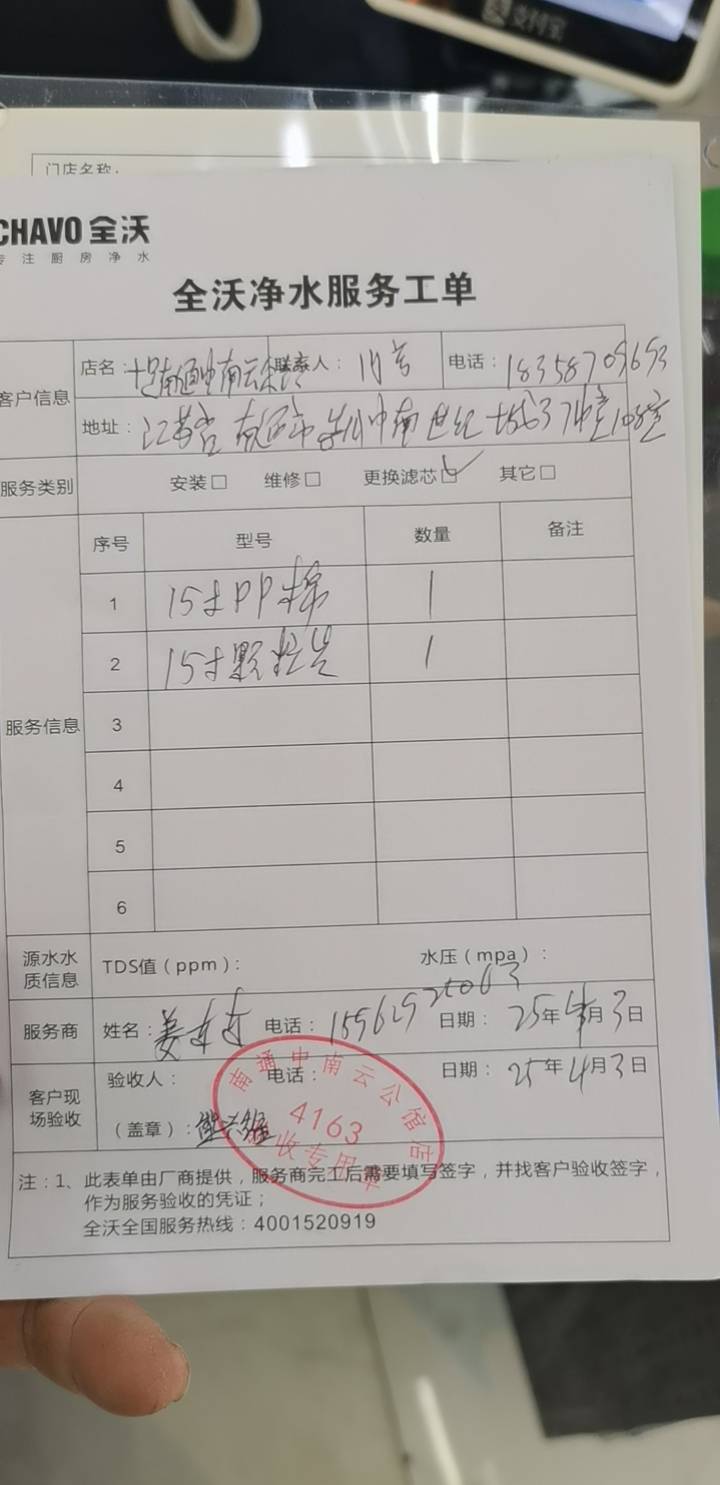 支付宝
门店名称：
CHAVO 全沃
专注厨房净水
全沃净水服务工单
客户信息
店名： 南通中南云 联系人： 电话：18358709693
地址：江苏省南通市 中南世纪城 108室
服务类别
安装□ 维修□ 更换滤芯☑ 其它□
服务信息
序号 型号 数量 备注
1 15寸PP棉 1
2 15寸颗粒炭 1
3
4
5
6
源水水质信息
TDS值（ppm）： 水压（mpa）：
服务商
姓名：姜 电话： 日期：25年4月3日
客户现场验收
验收人： 电话： 日期：25年4月3日
（盖章）：
南通中南云公馆店
4163
收专用章
注：1、此表单由厂商提供，服务商完工后需要填写签字，并找客户验收签字，
作为服务验收的凭证；
全沃全国服务热线：4001520919